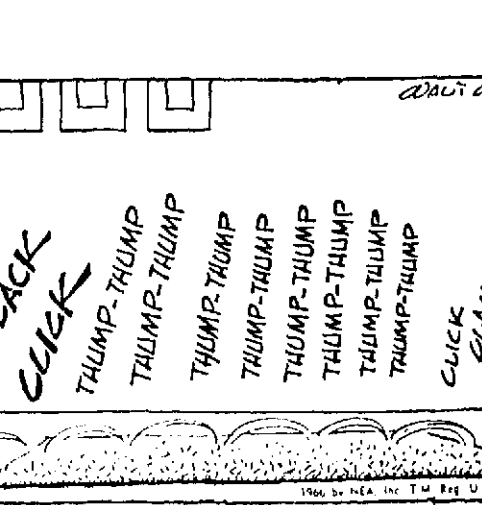 CLICK
THUMP-THUMP
THUMP-THUMP
THUMP-THUMP
THUMP-THUMP
THUMP-THUMP
THUMP-THUMP
THUMP-THUMP
THUMP-THUMP
CLICK
by NEA, Inc. T.M. Reg. U